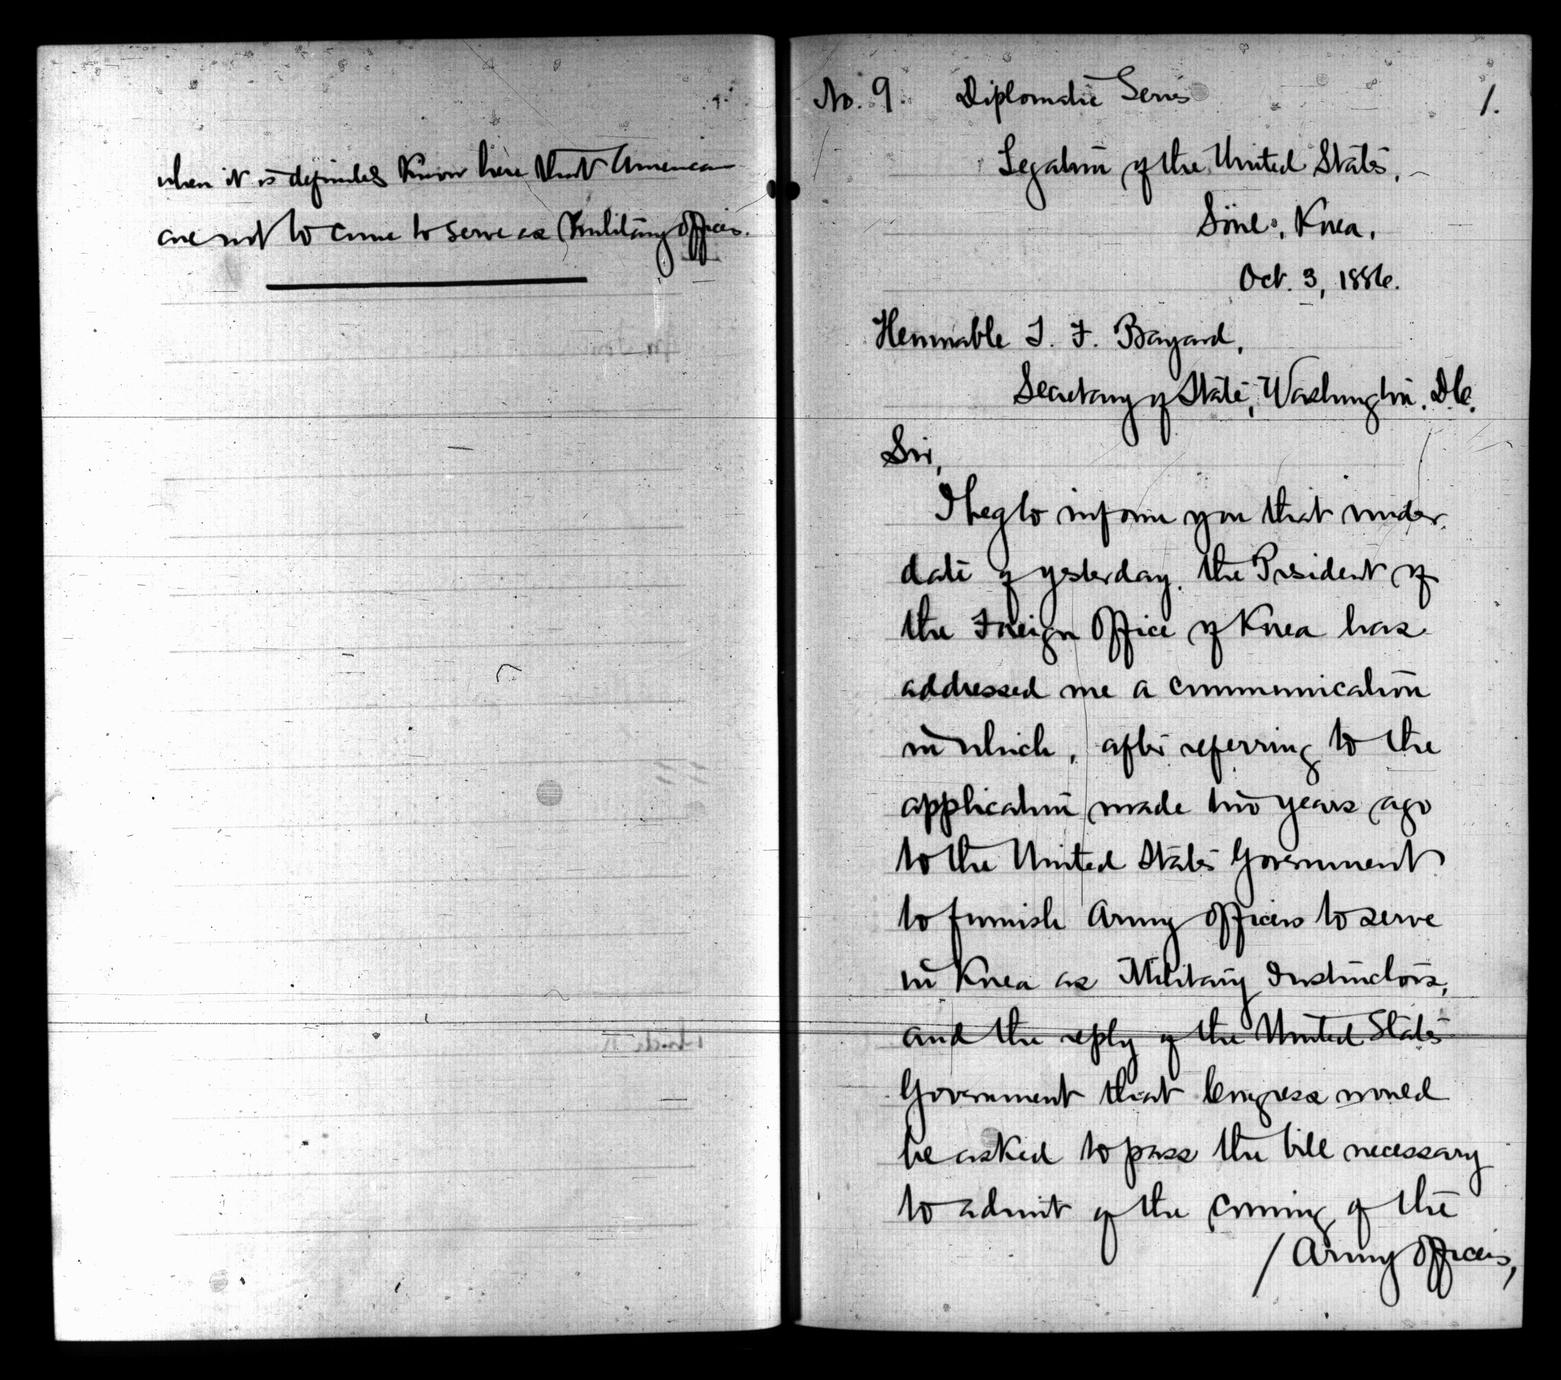 when it is definitely known here that Americans
are not to come to serve as military officers.
No. 9. Diplomatic Series 1.
Legation of the United States,
Söul, Korea,
Oct. 3, 1886.
Honorable T. F. Bayard,
Secretary of State, Washington, D.C.
Sir,
I beg to inform you that under
date of yesterday, the President of
the Foreign Office of Korea has
addressed me a communication
in which, after referring to the
application made two years ago
to the United States Government
to furnish Army Officers to serve
in Korea as Military Instructors,
and the reply of the United States
Government that Congress would
be asked to pass the bill necessary
to admit of the coming of the
/ Army Officers,